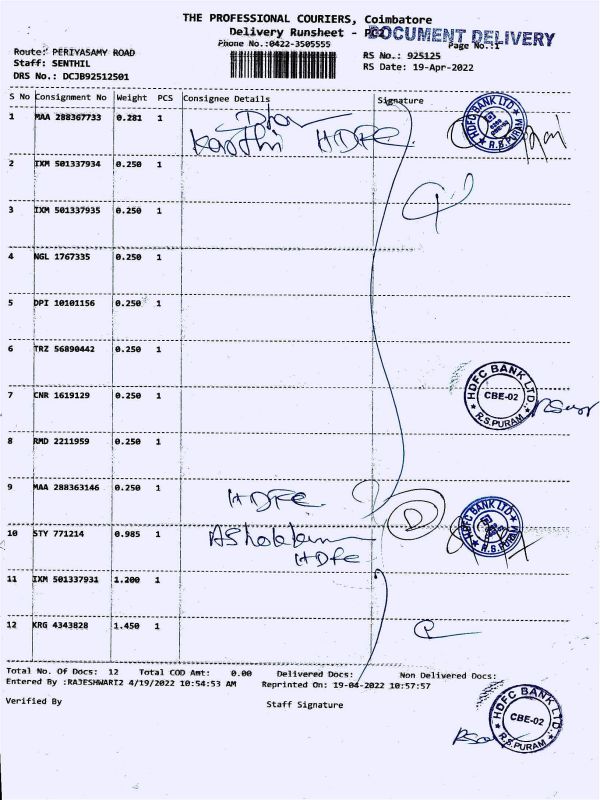 THE PROFESSIONAL COURIERS, Coimbatore
Delivery Runsheet - PC2
DOCUMENT DELIVERY
Phone No.:0422-3505555
Page No.:1
Route: PERIYASAMY ROAD
Staff: SENTHIL
DRS No.: DCJB92512501
RS No.: 925125
RS Date: 19-Apr-2022
S No Consignment No Weight PCS Consignee Details Signature
1 MAA 288367733 0.281 1
Karthi HDFC
HDFC BANK LTD
R.S.PURAM
2 IXM 501337934 0.250 1
3 IXM 501337935 0.250 1
4 NGL 1767335 0.250 1
5 DPI 10101156 0.250 1
6 TRZ 56890442 0.250 1
7 CNR 1619129 0.250 1
HDFC BANK LTD.,
CBE-02
R.S.PURAM
8 RMD 2211959 0.250 1
9 MAA 288363146 0.250 1
HDFC
D
HDFC BANK LTD
R.S.PURAM
10 STY 771214 0.985 1
HDFC
11 IXM 501337931 1.200 1
12 KRG 4343828 1.450 1
Total No. Of Docs: 12 Total COD Amt: 0.00 Delivered Docs: Non Delivered Docs:
Entered By :RAJESHWARI2 4/19/2022 10:54:53 AM Reprinted On: 19-04-2022 10:57:57
Verified By
Staff Signature
HDFC BANK LTD.,
CBE-02
R.S.PURAM